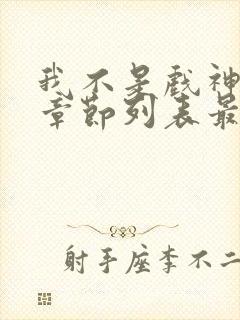 我不是戏神
章节列表最
射手座李不二